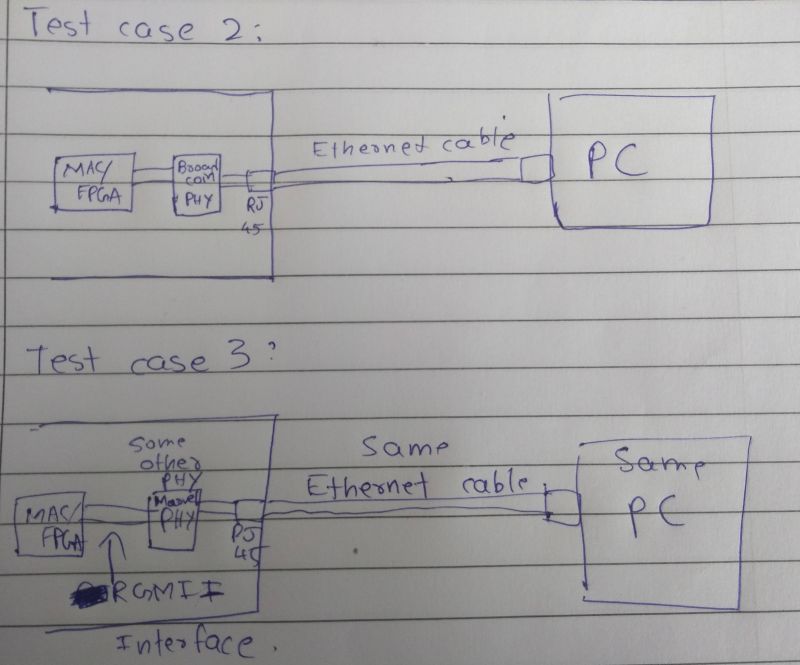 Test case 2:
Ethernet cable
MAC/
FPGA
Broad
com
PHY
RJ
45
PC
Test case 3:
Some
other
PHY
Same
Ethernet cable
Same
PC
MAC/
FPGA
PHY
RJ
45
RGMII
Interface.